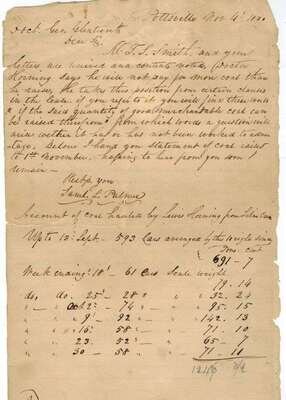 Pottsville Nov 4th
Doct. Geo.
Dear Sir
M. T. S. Smith, and your
letters are received and contents noted, Doctor
says he will not pay for more coal than
he raises, He takes this position from certain clauses
in the Lease. if you refer to it you will find these words
" if the said quantity of good merchantable coal can
be raised therefrom" from which words a question will
arise wether it has or has not been worked to adv
tage. Below I hand you statement of coal raised
to 1st November. hopeing to hear from you soon I
remain
Resptly yours
Saml. L. Palmer
Account of coal hauled by Lewis from
Up to 12 Sept. - 593 Cars averaged by the weights since
Tons. cwt
691 - 7
Week ending 18 - 61 Cars Scale weight
79 - 14
do, do. 25 - 28 " " " 32 - 24
" 2 - 74 " " " 95 - 15
" 9 - 92 " " " 142 - 13
" 16 - 58 " " " 71 - 10
" 23 - 52 " " " 65 - 7
" 30 - 58 " " " 71 - 11